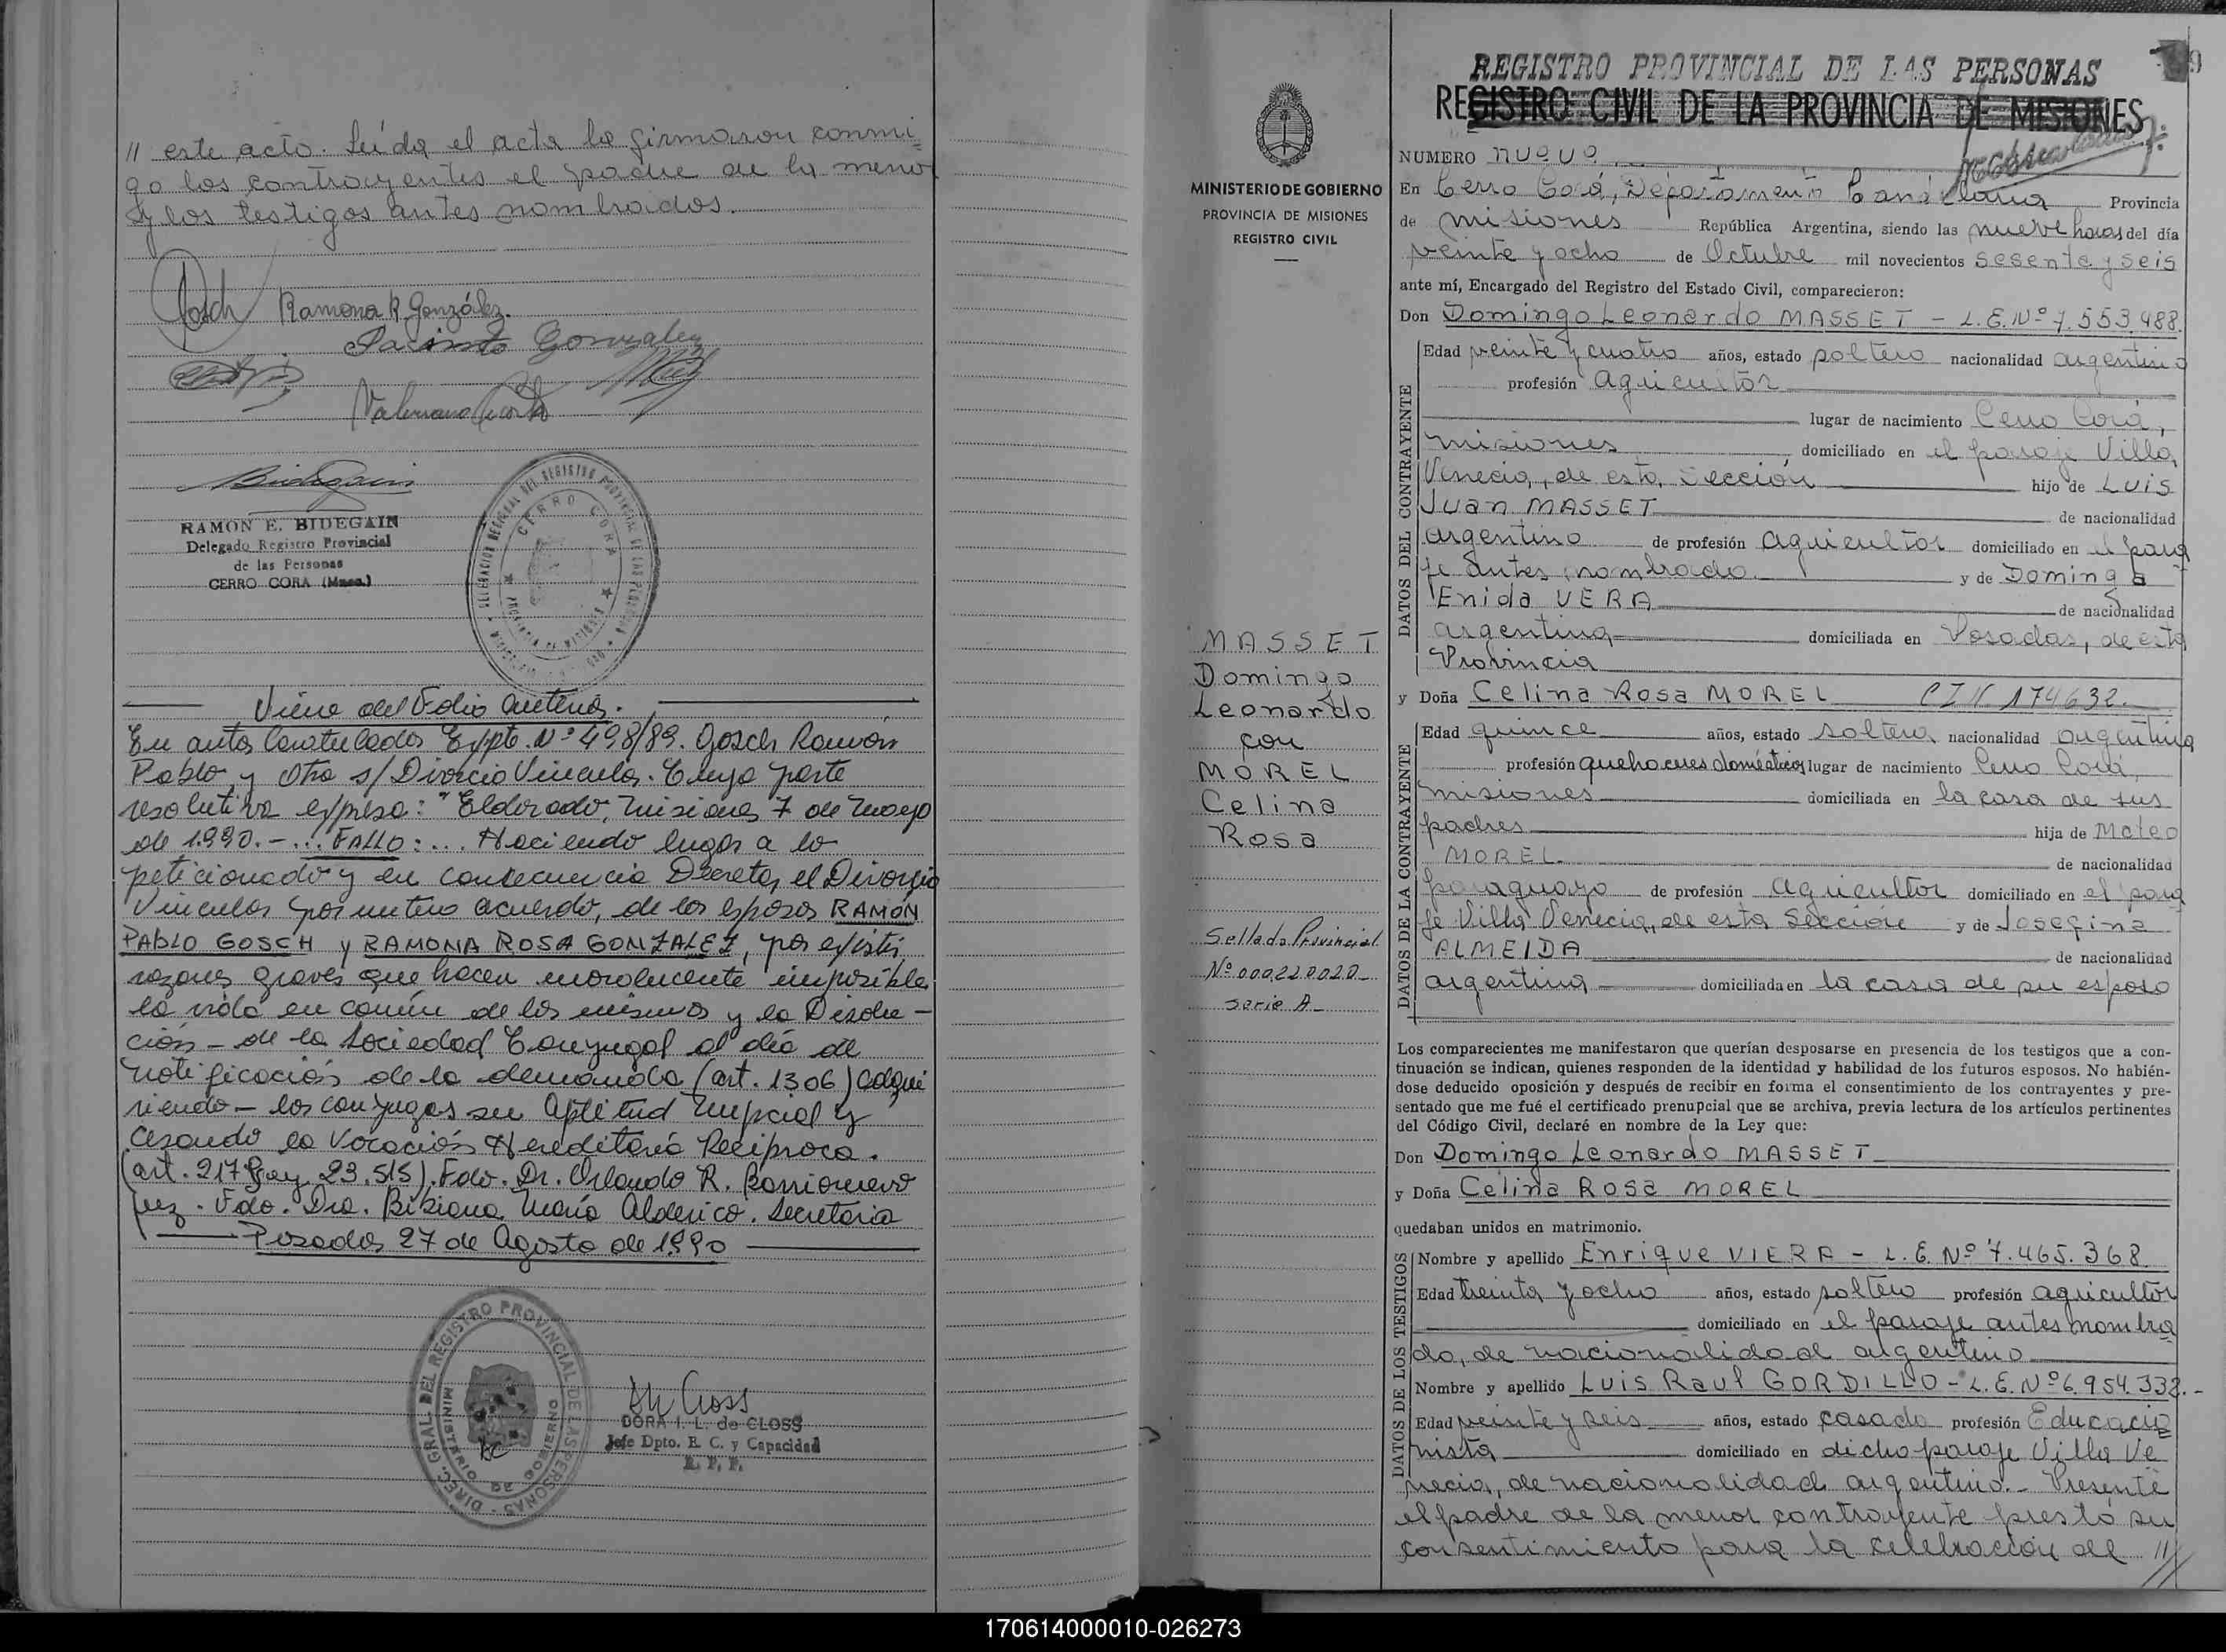 // este acto. Leída el acta la firmaron conmi=
go los contrayentes el padre de la menor
y los testigos antes nombrados.
Gosch Ramona R González.
Jacinto Gonzalez
Valeriano Acosta
Bidegain
RAMON E. BIDEGAIN
Delegado Registro Provincial
de las Personas
CERRO CORA (Mnes.)
DELEGACION REGIONAL DEL REGISTRO PROVINCIAL DE LAS PERSONAS
CERRO CORA
PROVINCIA DE MISIONES
Viene del Folio Anterior.
En autos Caratulados Expte. Nº 498/89. Gosch Ramón
Pablo y Otra s/ Divorcio Vincular. Cuya parte
resolutiva expresa: "Eldorado, Misiones, 7 de Mayo
de 1.990.- ... FALLO: ... Haciendo lugar a lo
peticionado y en consecuencia Decretar el Divorcio
Vincular por mutuo acuerdo, de los esposos RAMÓN
PABLO GOSCH y RAMONA ROSA GONZALEZ, por existir
razones graves que hacen moralmente imposible
la vida en común de los mismos y la Disolu-
ción - de la Sociedad Conyugal al día de
notificación de la demanda (art. 1306) adqui
riendo - los conyuges su Aptitud Nupcial y
Cesando la Vocación Hereditaria Recíproca.
(art. 217 Ley 23.515). Fdo. Dr. Orlando R. Barrionuevo
Juez. Fdo. Dra. Bibiana María Alderico. Secretaria
Posadas 27 de Agosto de 1990
DIREC. GRAL. DEL REGISTRO PROVINCIAL DE LAS PERSONAS
MINISTERIO DE GOBIERNO
DORA I. L. de CLOSS
Jefe Dpto. E. C. y Capacidad
R. P. P.
MINISTERIO DE GOBIERNO
PROVINCIA DE MISIONES
REGISTRO CIVIL
MASSET
Domingo
Leonardo
con
MOREL
Celina
Rosa
Sellado Provincial
Nº 000220020-
serie A-
REGISTRO PROVINCIAL DE LAS PERSONAS
REGISTRO CIVIL DE LA PROVINCIA DE MISIONES
NUMERO nueve
En Cerro Corá, Departamento Candelaria Provincia
de Misiones República Argentina, siendo las nueve horas del día
veinte y ocho de Octubre mil novecientos sesenta y seis
ante mí, Encargado del Registro del Estado Civil, comparecieron:
Don Domingo Leonardo MASSET - L.E. Nº 7.553.488.
DATOS DEL CONTRAYENTE
Edad veinte y cuatro años, estado soltero nacionalidad argentino
profesión agricultor
lugar de nacimiento Cerro Corá,
Misiones domiciliado en el paraje Villa
Venecia, de esta Sección hijo de Luis
Juan MASSET de nacionalidad
argentino de profesión agricultor domiciliado en el para
je antes nombrado y de Dominga
Enida VERA de nacionalidad
argentina domiciliada en Posadas, de esta
Provincia
y Doña Celina Rosa MOREL CI N 174632.
DATOS DE LA CONTRAYENTE
Edad quince años, estado soltera nacionalidad argentina
profesión quehaceres domésticos lugar de nacimiento Cerro Corá,
Misiones domiciliada en la casa de sus
padres hija de Mateo
MOREL de nacionalidad
paraguayo de profesión agricultor domiciliado en el para
je Villa Venecia, de esta Sección y de Josefina
ALMEIDA de nacionalidad
argentina domiciliada en la casa de su esposo
Los comparecientes me manifestaron que querían desposarse en presencia de los testigos que a con-
tinuación se indican, quienes responden de la identidad y habilidad de los futuros esposos. No habién-
dose deducido oposición y después de recibir en forma el consentimiento de los contrayentes y pre-
sentado que me fué el certificado prenupcial que se archiva, previa lectura de los artículos pertinentes
del Código Civil, declaré en nombre de la Ley que:
Don Domingo Leonardo MASSET
y Doña Celina Rosa MOREL
quedaban unidos en matrimonio.
DATOS DE LOS TESTIGOS
Nombre y apellido Enrique VIERA - L.E. Nº 7.465.368
Edad treinta y ocho años, estado soltero profesión agricultor
domiciliado en el paraje antes nombra
do, de nacionalidad argentino
Nombre y apellido Luis Raul GORDILLO - L.E. Nº 6.954.332.-
Edad veinte y seis años, estado casado profesión Educacio
nista domiciliado en dicho paraje Villa Ve
necia, de nacionalidad argentino.- Presente
el padre de la menor contrayente prestó su
consentimiento para la celebración de //
170614000010-026273